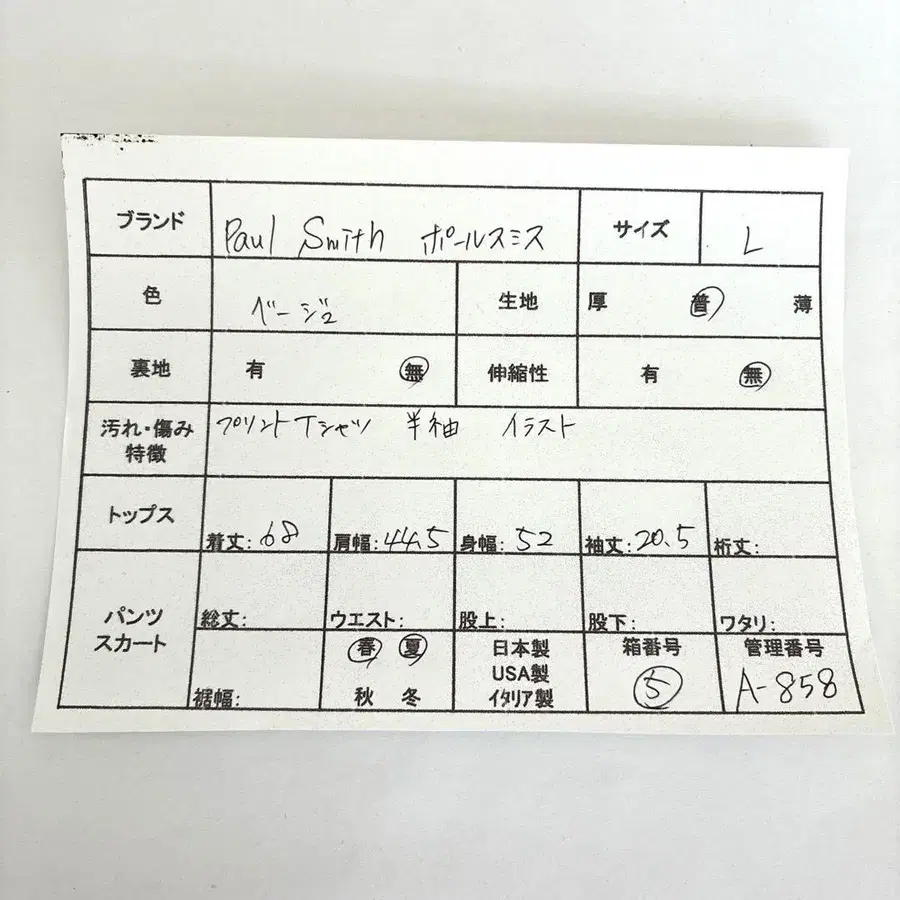 ブランド Paul Smith ポールスミス サイズ L
色 ベージュ 生地 厚 普 薄
裏地 有 無 伸縮性 有 無
汚れ・傷み 特徴 プリントTシャツ 半袖 イラスト
トップス 着丈:68 肩幅:44.5 身幅:52 袖丈:20.5 裄丈:
パンツ スカート 総丈: ウエスト: 股上: 股下: ワタリ:
裾幅: 春 夏 秋 冬 日本製 USA製 イタリア製 箱番号 5 管理番号 A-858